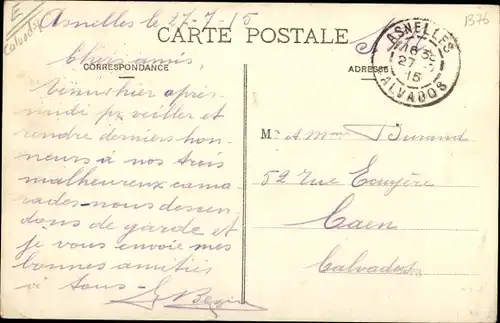 Asnelles le 27-7-15
CARTE POSTALE
CORRESPONDANCE
ADRESSE
ASNELLES
16 35
27 - 7
15
CALVADOS
E
Calvados
1376
Chers amis,
Venu hier après
midi pr veiller et
rendre derniers hon-
neurs à nos trois
malheureux cama-
rades - nous descen-
dons de garde et
je vous envoie mes
bonnes amitiés
à tous
Mr & Mme Durand
52 rue Ecuyère
Caen
Calvados